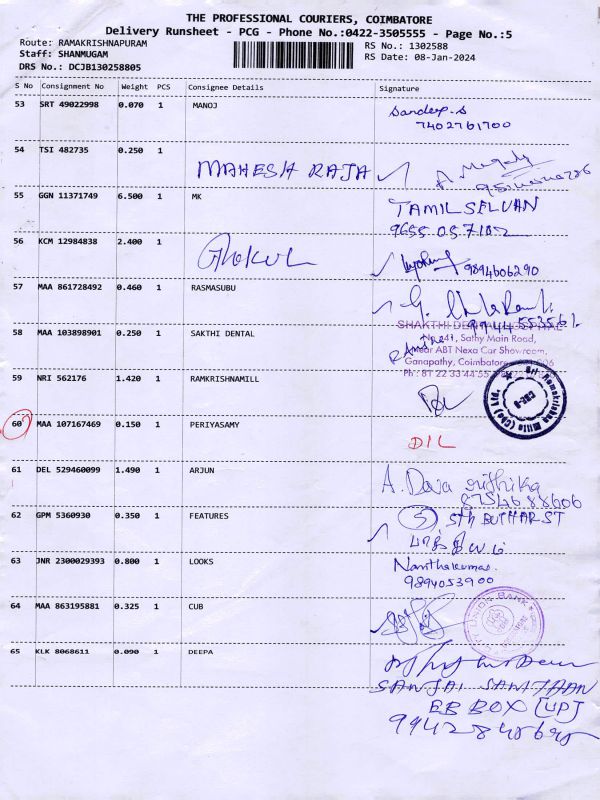 THE PROFESSIONAL COURIERS, COIMBATORE
Delivery Runsheet - PCG - Phone No.:0422-3505555 - Page No.:5
Route: RAMAKRISHNAPURAM
Staff: SHANMUGAM
DRS No.: DCJB130258805
RS No.: 1302588
RS Date: 08-Jan-2024
S No Consignment No Weight PCS Consignee Details Signature
53 SRT 49022998 0.070 1 MANOJ
Sandeep.S
7402761700
54 TSI 482735 0.250 1
MAHESH RAJA
55 GGN 11371749 6.500 1 MK
TAMIL SELVAN
9655 057102
56 KCM 12984838 2.400 1
GHOKUL
9894606290
57 MAA 861728492 0.460 1 RASMASUBU
9944553561
58 MAA 103898901 0.250 1 SAKTHI DENTAL
SHAKTHI DENTAL
No. 241, Sathy Main Road,
Near ABT Nexa Car Showroom,
Ganapathy, Coimbatore
Ph : 81 22 33 44 55
59 NRI 562176 1.420 1 RAMKRISHNAMILL
Sri Ramakrishna Mills (Cbe) Ltd.
60 MAA 107167469 0.150 1 PERIYASAMY
DIL
61 DEL 529460099 1.490 1 ARJUN
A. Deva
8754688606
62 GPM 5360930 0.350 1 FEATURES
5 5th BUTHAR ST
63 JNR 2300029393 0.800 1 LOOKS
Nanthakumar
9894053900
64 MAA 863195881 0.325 1 CUB
UNION BANK
65 KLK 8068611 0.090 1 DEEPA
SANJAI
EB BOX [UP]